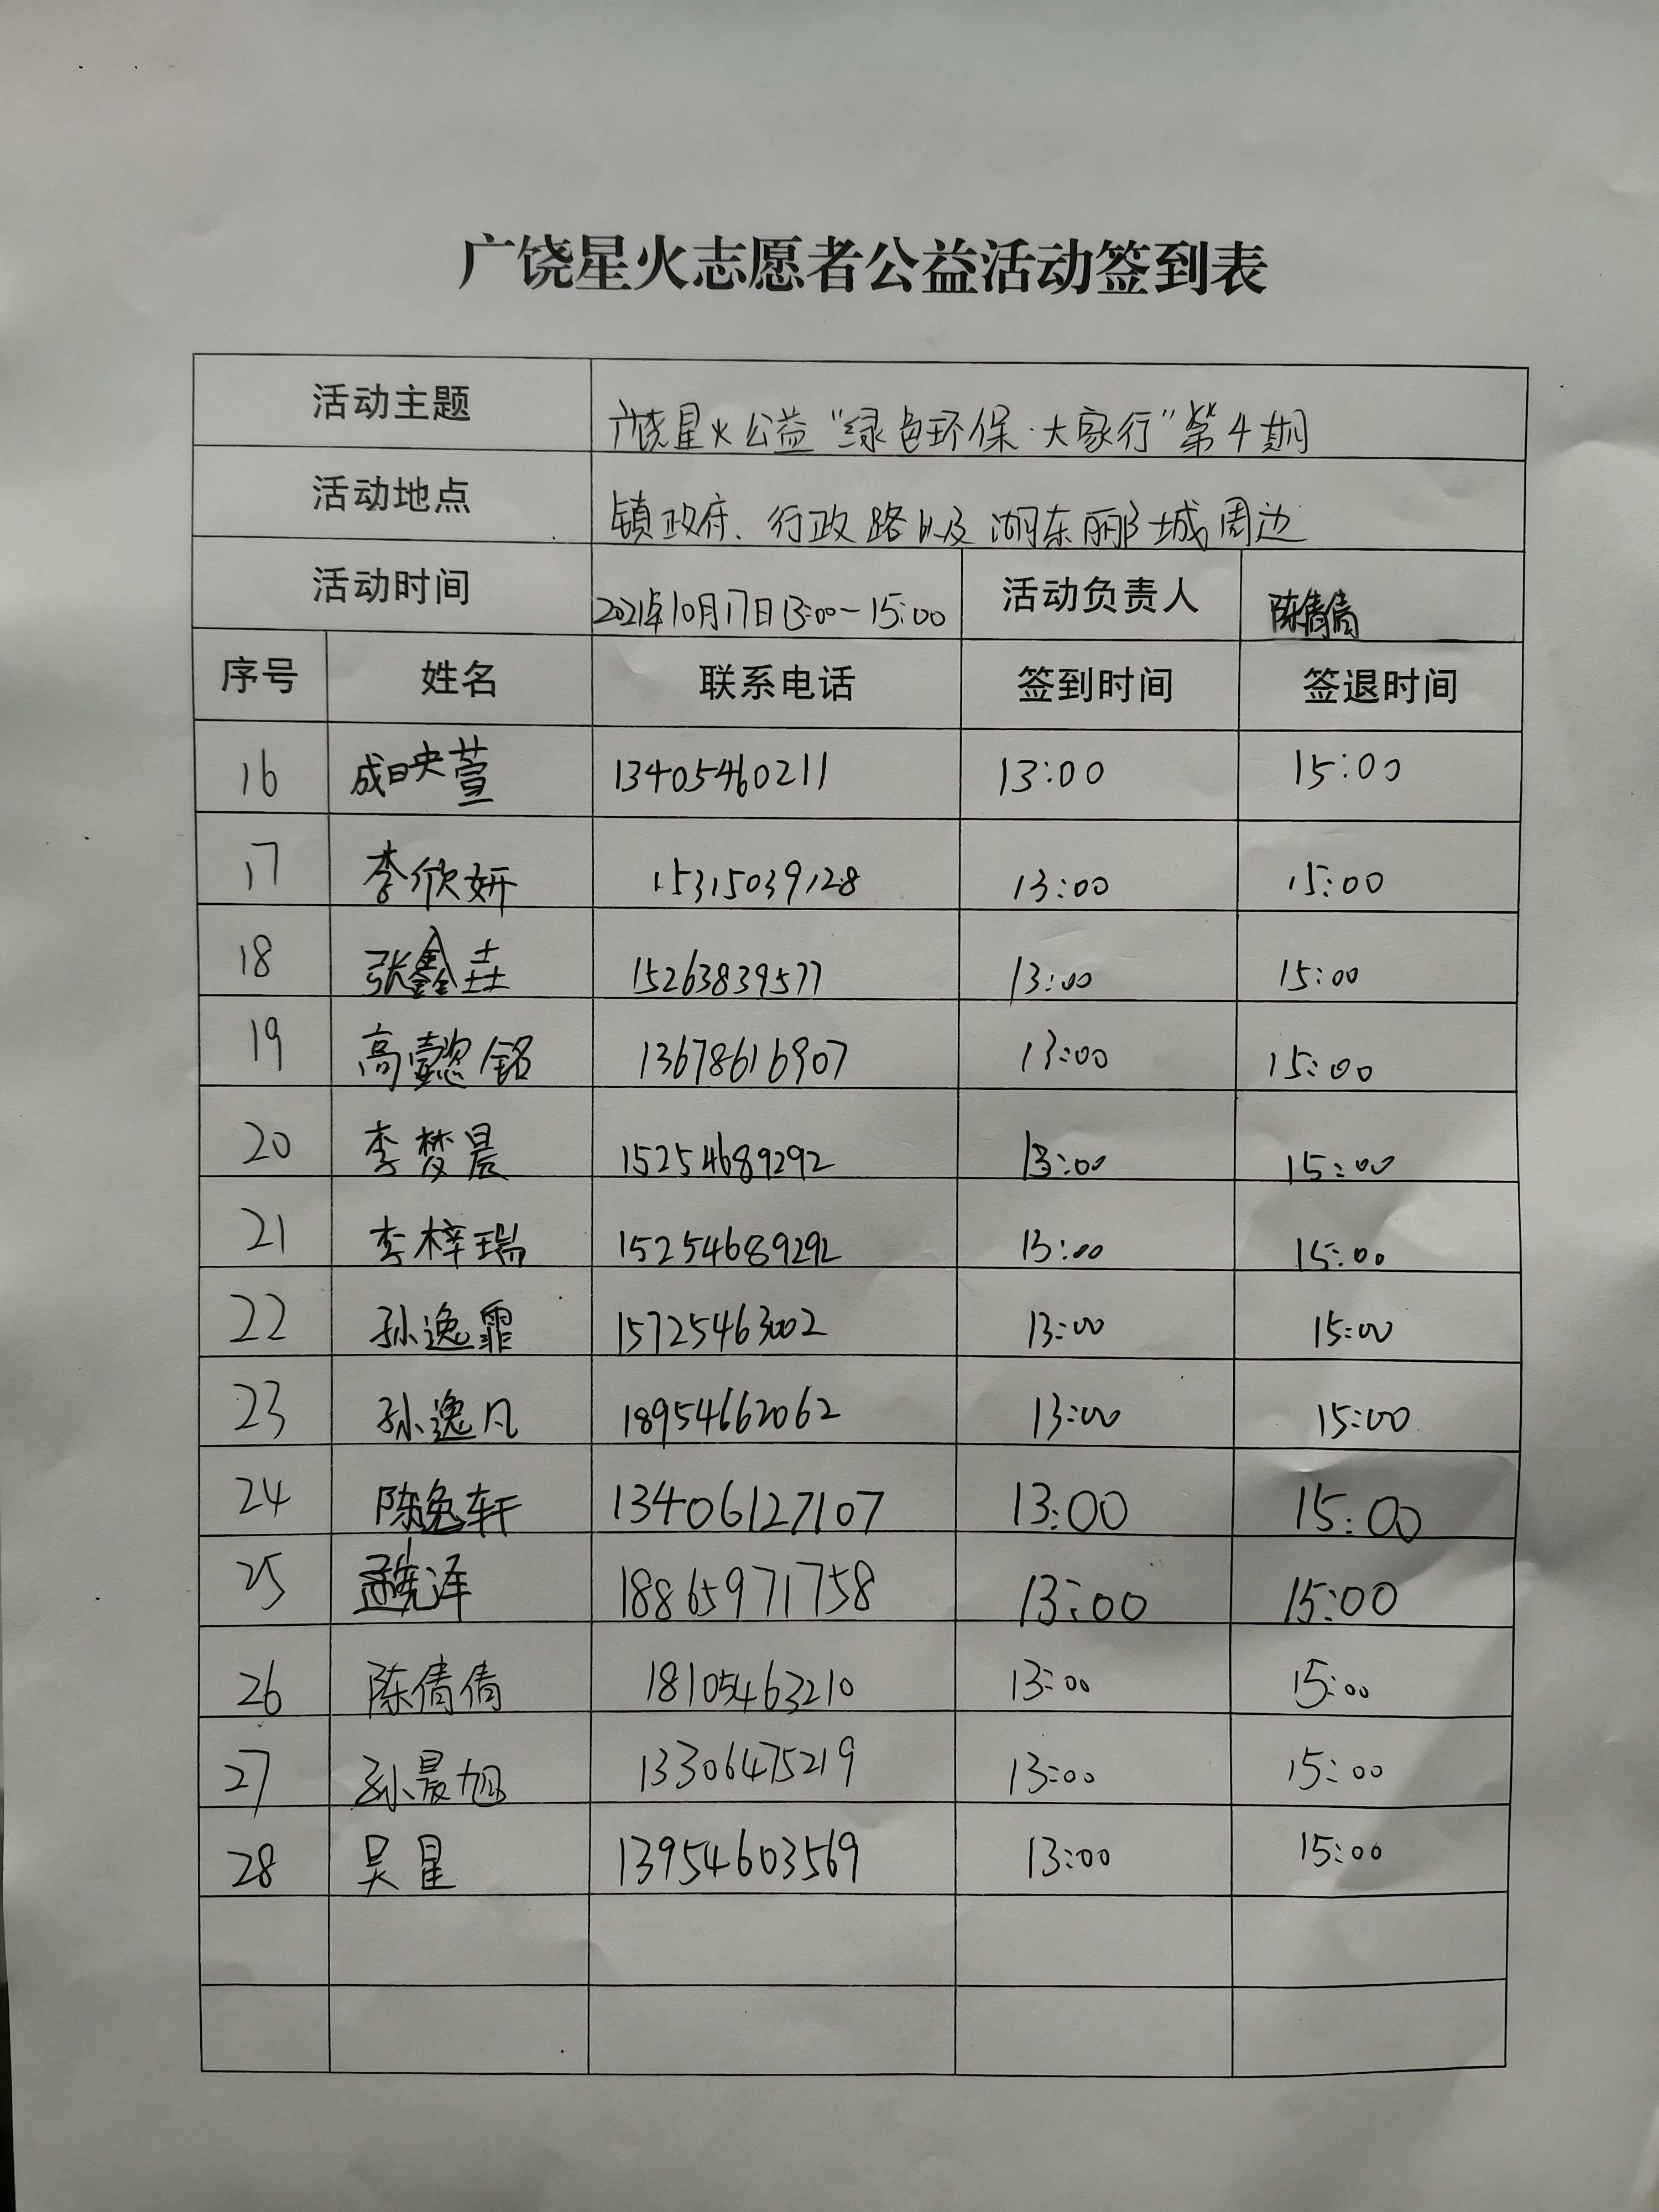 广饶星火志愿者公益活动签到表
活动主题 广饶星火公益“绿色环保·大家行”第4期
活动地点 镇政府、行政路以及湖东郦城周边
活动时间 2021年10月17日13:00-15:00 活动负责人 陈倩倩
序号 姓名 联系电话 签到时间 签退时间
16 成映萱 13405460211 13:00 15:00
17 李欣妍 15315039128 13:00 15:00
18 张鑫垚 15263839577 13:00 15:00
19 高懿铭 13678616907 13:00 15:00
20 李梦晨 15254689292 13:00 15:00
21 李梓瑞 15254689292 13:00 15:00
22 孙逸霏 15725463002 13:00 15:00
23 孙逸凡 18954662062 13:00 15:00
24 陈兔轩 13406127107 13:00 15:00
25 孟宪泽 18865971758 13:00 15:00
26 陈倩倩 18105463210 13:00 15:00
27 孙晨旭 13306475219 13:00 15:00
28 吴星 13954603569 13:00 15:00